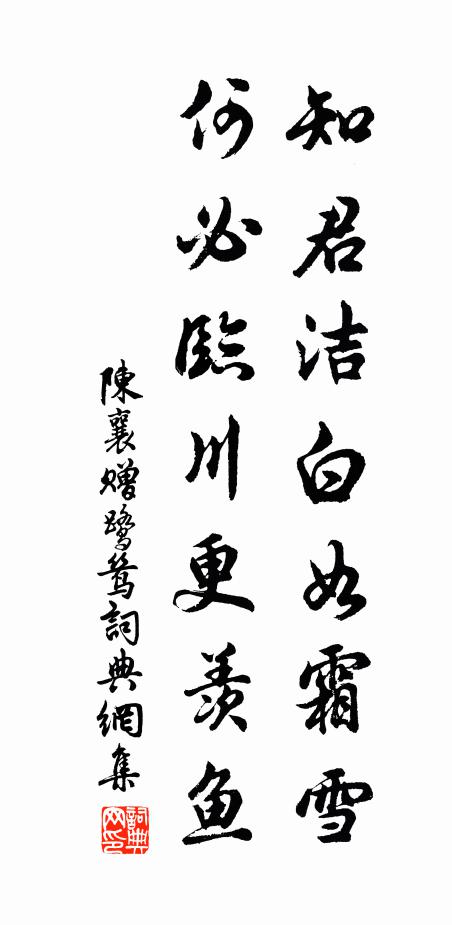 知君洁白如霜雪
何必臨川更羡鱼
陳襄赠鹭鸶詞典網集
詞典网印